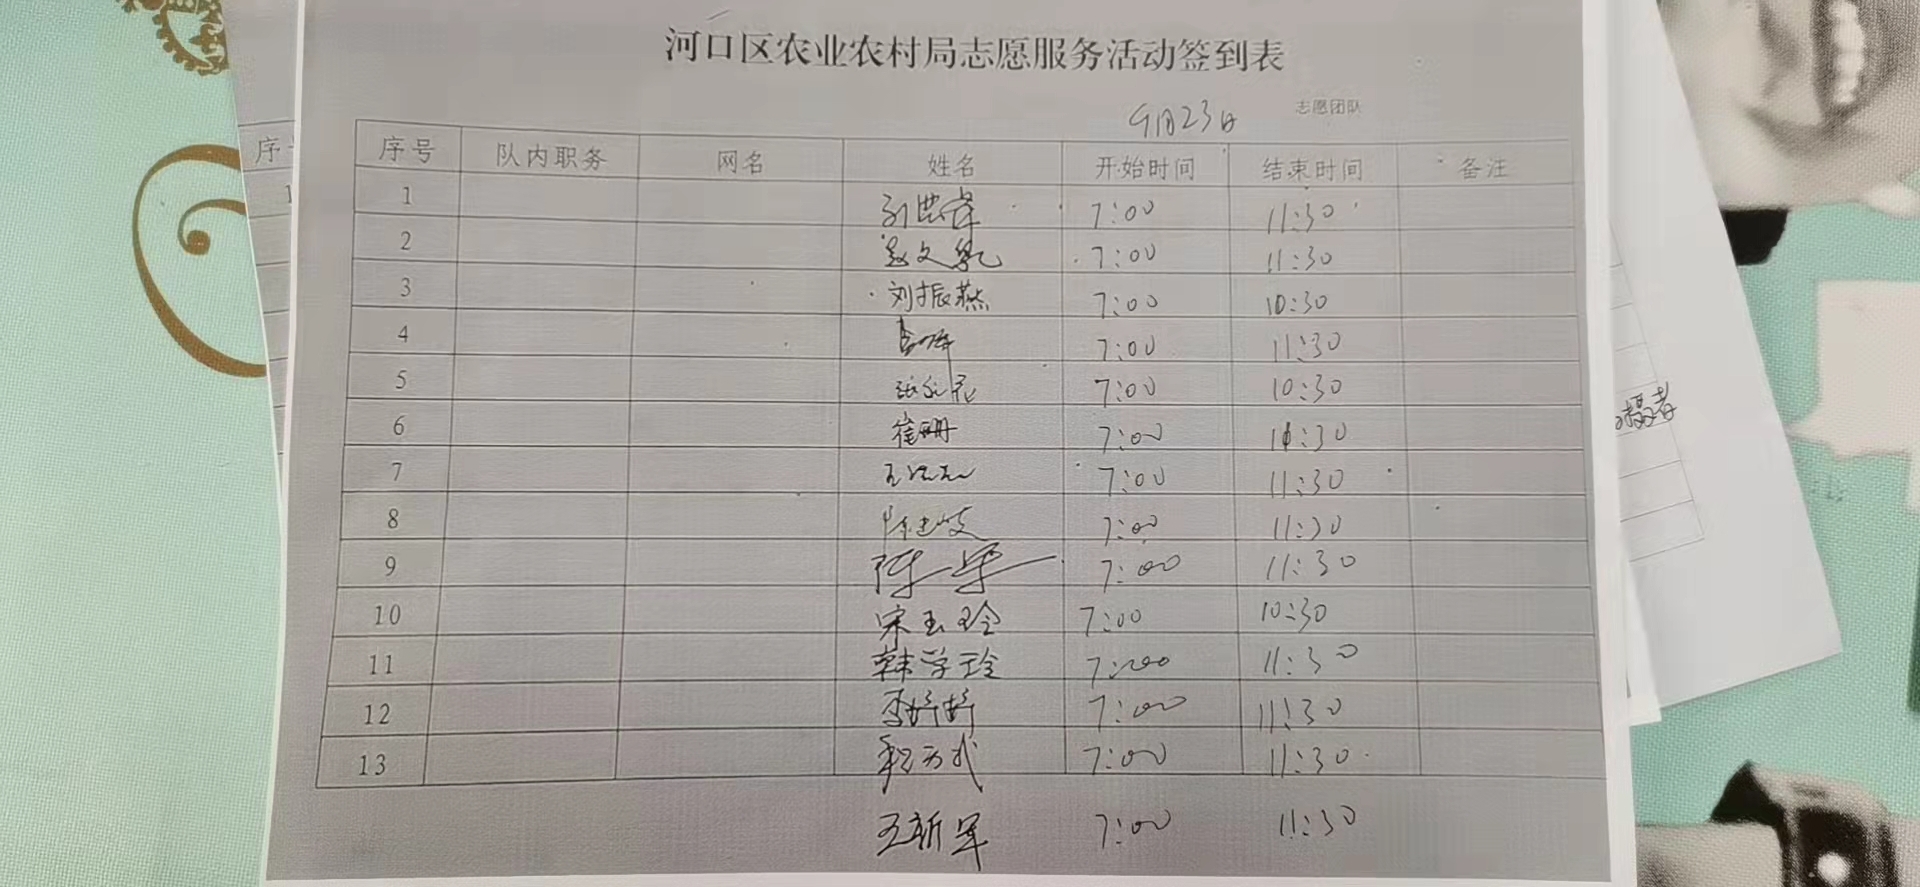 河口区农业农村局志愿服务活动签到表
9月23日 志愿团队
序号 队内职务 网名 姓名 开始时间 结束时间 备注
1 7:00 11:30
2 赵文 7:00 11:30
3 刘振燕 7:00 10:30
4 7:00 11:30
5 7:00 10:30
6 崔珊 7:00 11:30
7 7:00 11:30
8 7:00 11:30
9 陈军 7:00 11:30
10 宋玉玲 7:00 10:30
11 韩学玲 7:00 11:30
12 李婷婷 7:00 11:30
13 程方武 7:00 11:30
王新军 7:00 11:30
序
1
摄者